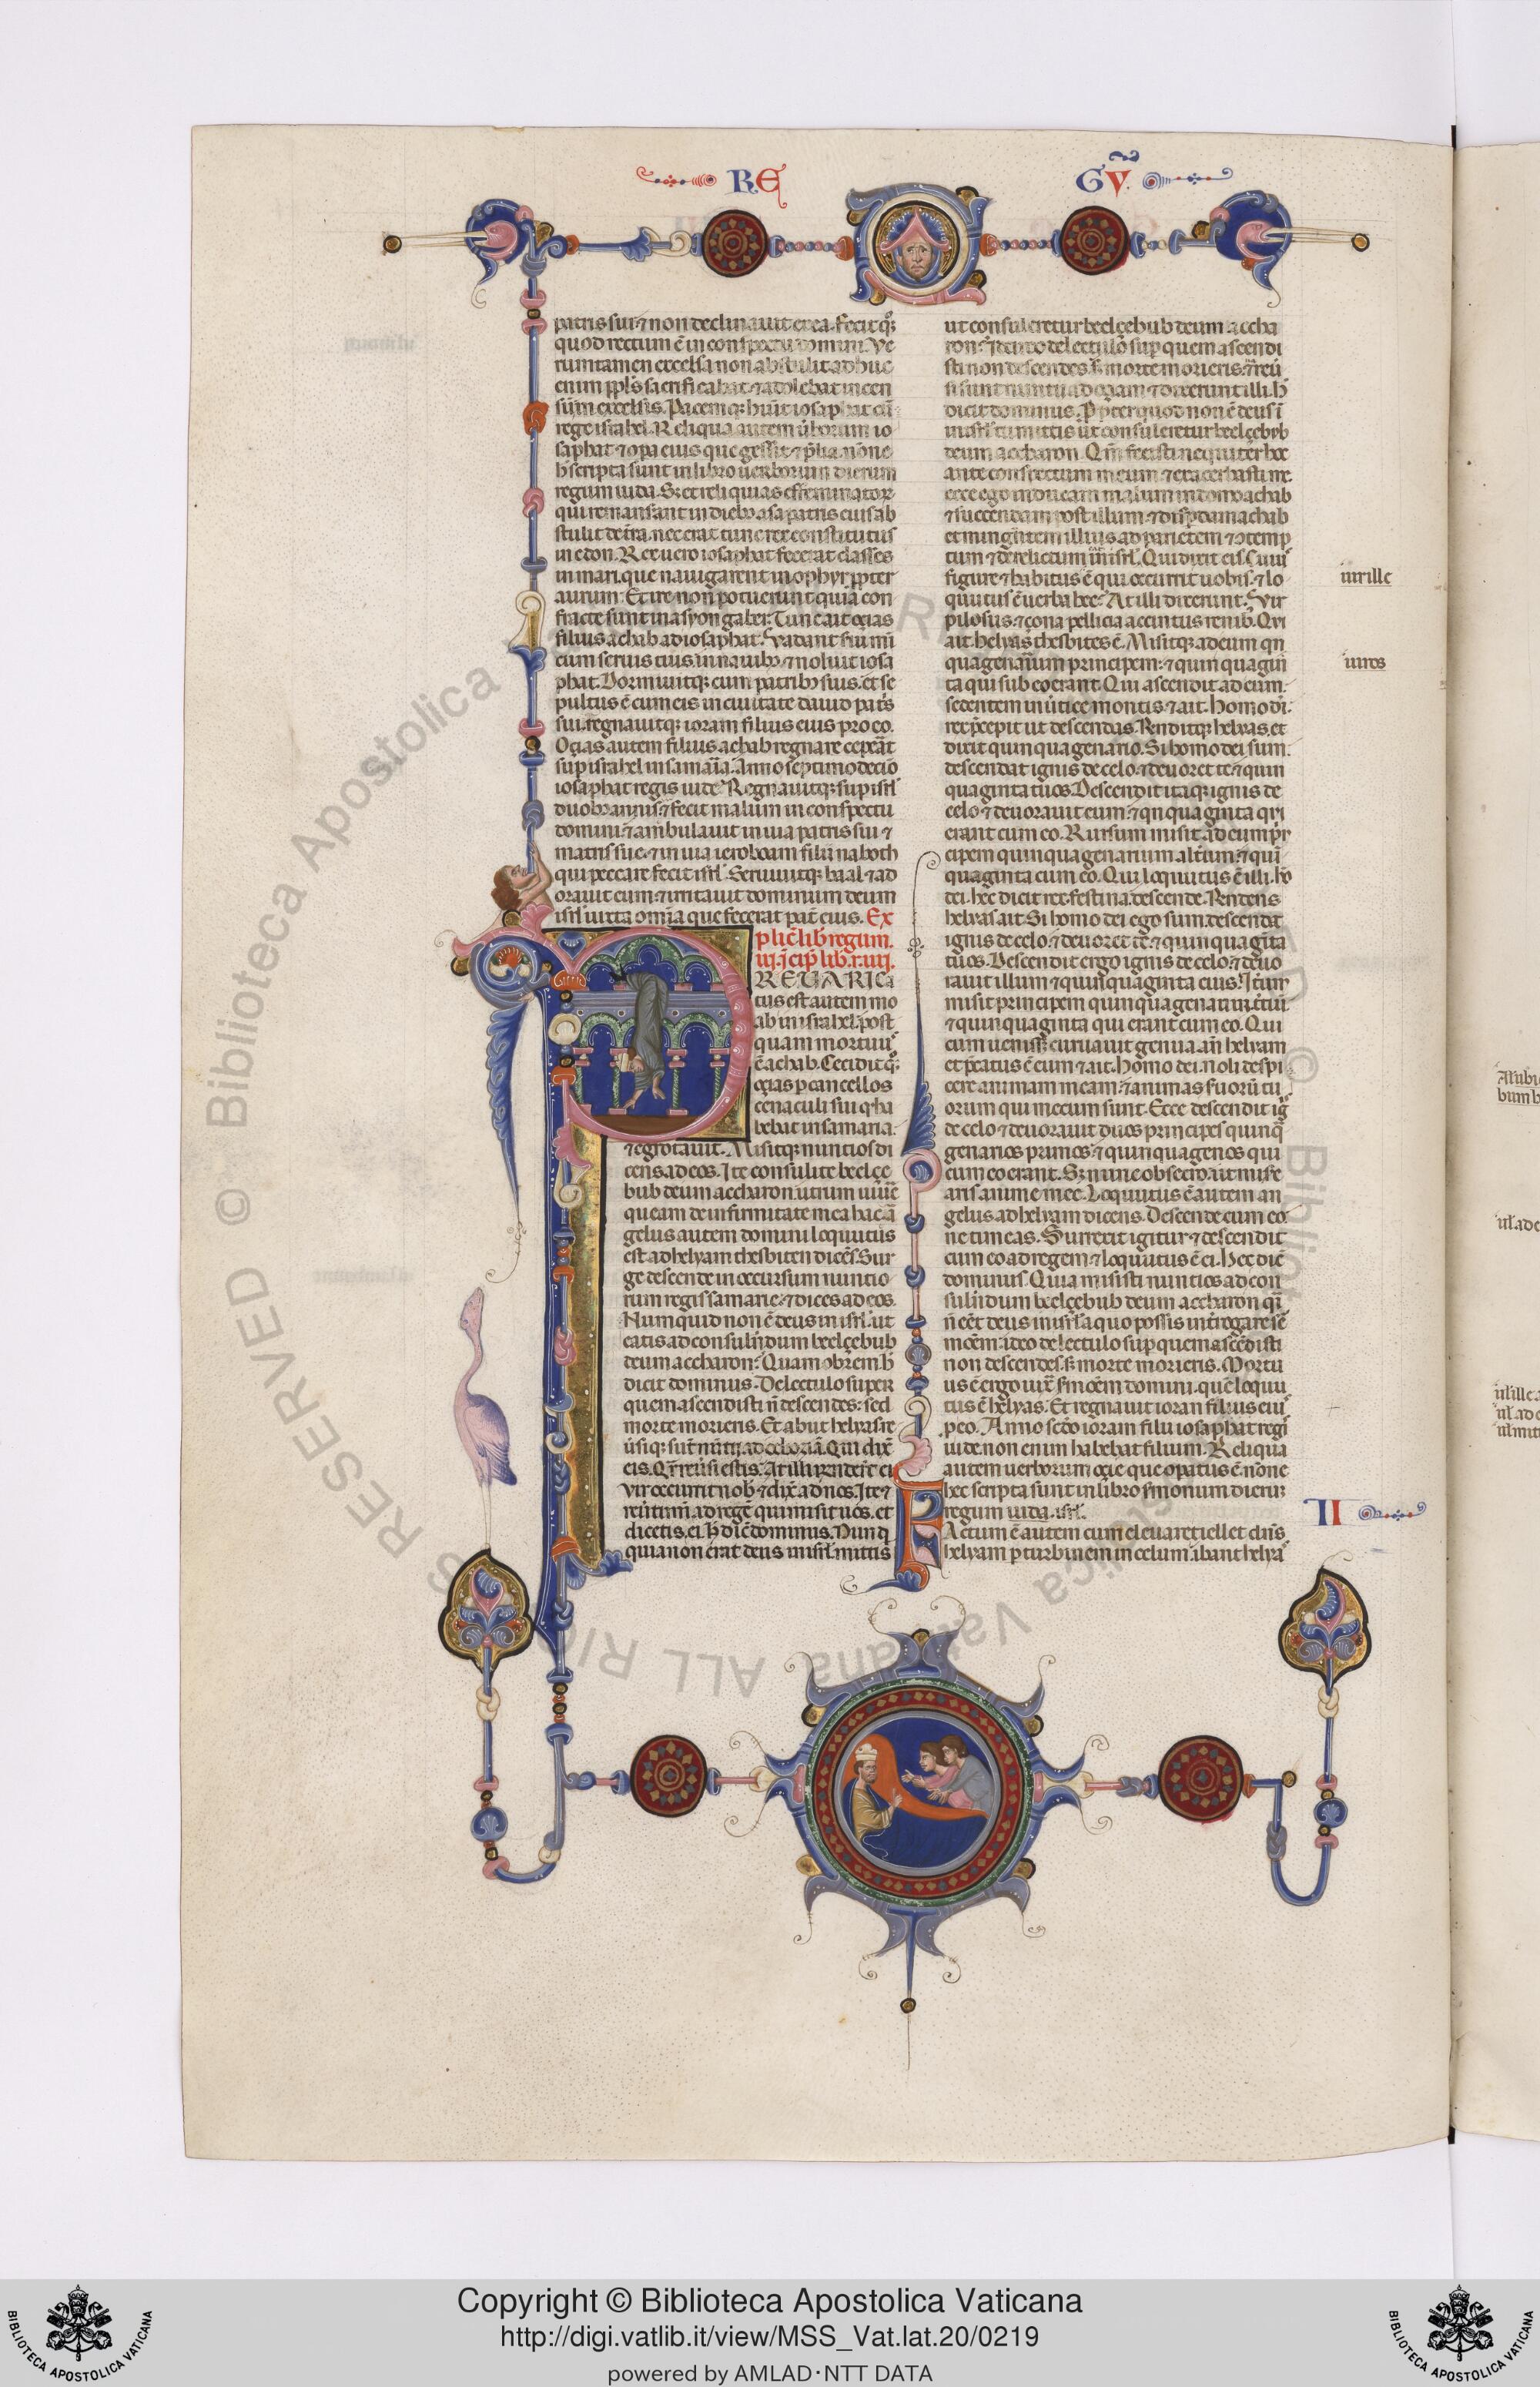 RE GV̅.
patris sui ⁊ non declinauit ex ea. Fecitq3
quod rectum ē in conspectu domini. Ve
rumtamen excelsa non abstulit adhuc
enim ppl's sacrificabat ⁊ adolebat incen
sum excelsis. Pacemq3 huit iosaphat cū
rege israhel. Reliqua autem uborum io
saphat ⁊ opa eius que gessit ⁊ plia nōne
h scripta sunt in libro uerborum dierum
regum iuda. S3 et reliquias effeminator
qui remanserant in dieb3 asa patris eius ab
stulit de tra. nec erat tunc rex constitutus
in edon. Rex uero iosaphat fecerat classes
in mari. que nauigarent in ophyr ppter
aurum. Et ire non potuerunt quia con
fracte sunt in asyongaber. Tunc ait oçias
filius achab ad iosaphat. Vadant sui mī
cum seruis tuis in nauib3. ⁊ noluit iosa
phat. Dormiuitq3 cum patrib3 suis. et se
pultus ē cum eis in ciuitate dauid patis
sui. regnauitq3 ioram filius eius pro eo.
Oçias autem filius achab regnare ceperat
sup israhel in samaria. Anno septimo decio
iosaphat regis iude. Regnauitq3 sup isrl
duob3 annis ⁊ fecit malum in conspectu
domini ⁊ ambulauit in uia patris sui ⁊
matris sue. ⁊ in uia ieroboam filii naboth
qui peccare fecit isrl. Seruiuitq3 baal ⁊ ad
orauit eum ⁊ irritauit dominum deum
isrl iuxta omīa que fecerat pat eius. Ex
plic lib regum.
iii. īcip lib. r. iiii.
PREVARICA
tus est autem mo
ab in israhel. post
quam mortuus
ē achab. Ceciditq3
oçias p cancellos
cenaculi sui q ha
bebat in samaria.
⁊ egrotauit. Misitq3 nuntios di
cens ad eos. Ite consulite beelçe
bub deum accharon. utrum uiuē
queam de infirmitate mea hac. ā
gelus autem domini loquutus
est ad helyam thesbiten dicēs. Sur
ge descende in occursum nuntio
rum regis samarie. ⁊ dices ad eos.
Numquid non ē deus in isrl. ut
eatis ad consulēdum beelçebub
deum accharon. Quam obrem h
dicit dominus. De lectulo super
quem ascendisti n descendes: sed
morte morieris. Et abiit helyas re
uersiq3 sut nutii ad ochoçiā. Qui dixit
eis. Qre reusi estis. At illi rnderūt ei
vir occurrit nob ⁊ dixit ad nos. Ite ⁊
reutimi ad regē qui misit uos. et
dicetis ei. h dicit dominus. Nunq
quia non erat deus in isrl. mittis
ut consuleretur beelçebub deum accha
ron. Idcirco de lectulo sup quem ascendi
sti non descendes. s3 morte morieris. reū
si sunt nuntii ad oçiam ⁊ dixerunt illi. h
dicit dominus. Propter quod non ē deus ī
in isrl. tu mittis ut consuleretur beelçebub
deum accharon. Qm fecisti nequiter hec
ante conspectum meum ⁊ exacerbasti me
ecce ego inducam malum in domo achab
⁊ succendam post illum. ⁊ disperdam achab
et mingentem illius ad parietem ⁊ contemp
tum ⁊ derelictum in isrl. Qui dixit eis. Cuius
figure ⁊ habitus ē qui occurrit uobis. ⁊ lo
quutus ē uerba hec. At illi dixerunt. Vir
pilosus. ⁊ çona pellicia accintus renib. Qui
ait. helyas thesbites ē. Misitq3 ad eum qn
quagenarium principem. ⁊ quinquagin
ta qui sub eo erant. Qui ascendit ad eum.
sedentem in uertice montis. ⁊ ait. homo di.
rex pcepit ut descendas. Rnditq3 helyas. et
dixit quinquagenario. Si homo dei sum.
descendat ignis de celo. ⁊ deuoret te ⁊ quin
quaginta tuos. Descendit itaq3 ignis de
celo ⁊ deuorauit eum ⁊ qnquaginta qui
erant cum eo. Rursum misit ad eum prin
cipem quinquagenarium altium. ⁊ quin
quaginta cum eo. Qui loquutus ē illi. ho
dei. hec dicit rex. festina. descende. Rndens
helyas ait. Si homo dei ego sum. descendat
ignis de celo. ⁊ deuoret te. ⁊ quinquaginta
tuos. Descendit ergo ignis de celo. ⁊ deuo
rauit illum ⁊ quinquaginta eius. Itum
misit principem quinquagenarium. tium
⁊ quinquaginta qui erant cum eo. Qui
cum uenisset curuauit genua. an helyam
et pcatus ē eum ⁊ ait. Homo dei. noli despi
cere animam meam. ⁊ animas suorū tu
orum qui mecum sunt. Ecce descendit ig
de celo ⁊ deuorauit duos principes quinq
genarios primos ⁊ quinquagenos qui
cum eo erant. S3 nunc obsecro ut mise
aris anime mee. Loquutus ē autem an
gelus ad helyam dicens. Descende cum eo
ne timeas. Surrexit igitur ⁊ descendit
cum eo ad regem. ⁊ loquutus ē ei. Hec dicit
dominus. Quia misisti nuntios ad con
sulndum beelçebub deum accharon. qsi
n eet deus in isrl. a quo possis introgare se
monem. ideo de lectulo sup quem ascedisti
non descendes. s3 morte morieris. Mortu
us ē ergo iux smonem domini. que loquu
tus ē helyas. Et regnauit ioran filius eius
p eo. Anno scdo ioram filii iosaphat regis
iude. non enim habebat filium. Reliqua
autem uerborum oçie que opatus ē. nōne
hec scripta sunt in libro smonum dierum
regum iuda. isrl.
FActum ē autem cum eleuare uellet dns
helyam p turbinem in celum. ibant helyas
ııırılle
uıros
II
Copyright © Biblioteca Apostolica Vaticana
http://digi.vatlib.it/view/MSS_Vat.lat.20/0219
powered by AMLAD·NTT DATA